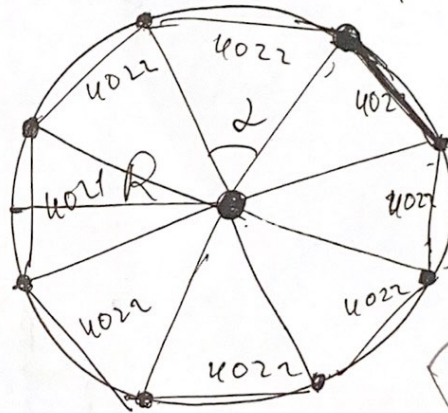 4022
4022
402
α
4021 R
4022
4022
4022
4022